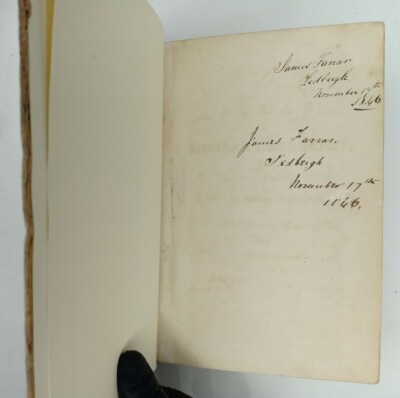 James Farrar
Sedbergh
November 17th
1846
James Farrar.
Sedbergh
November 17th
1846.